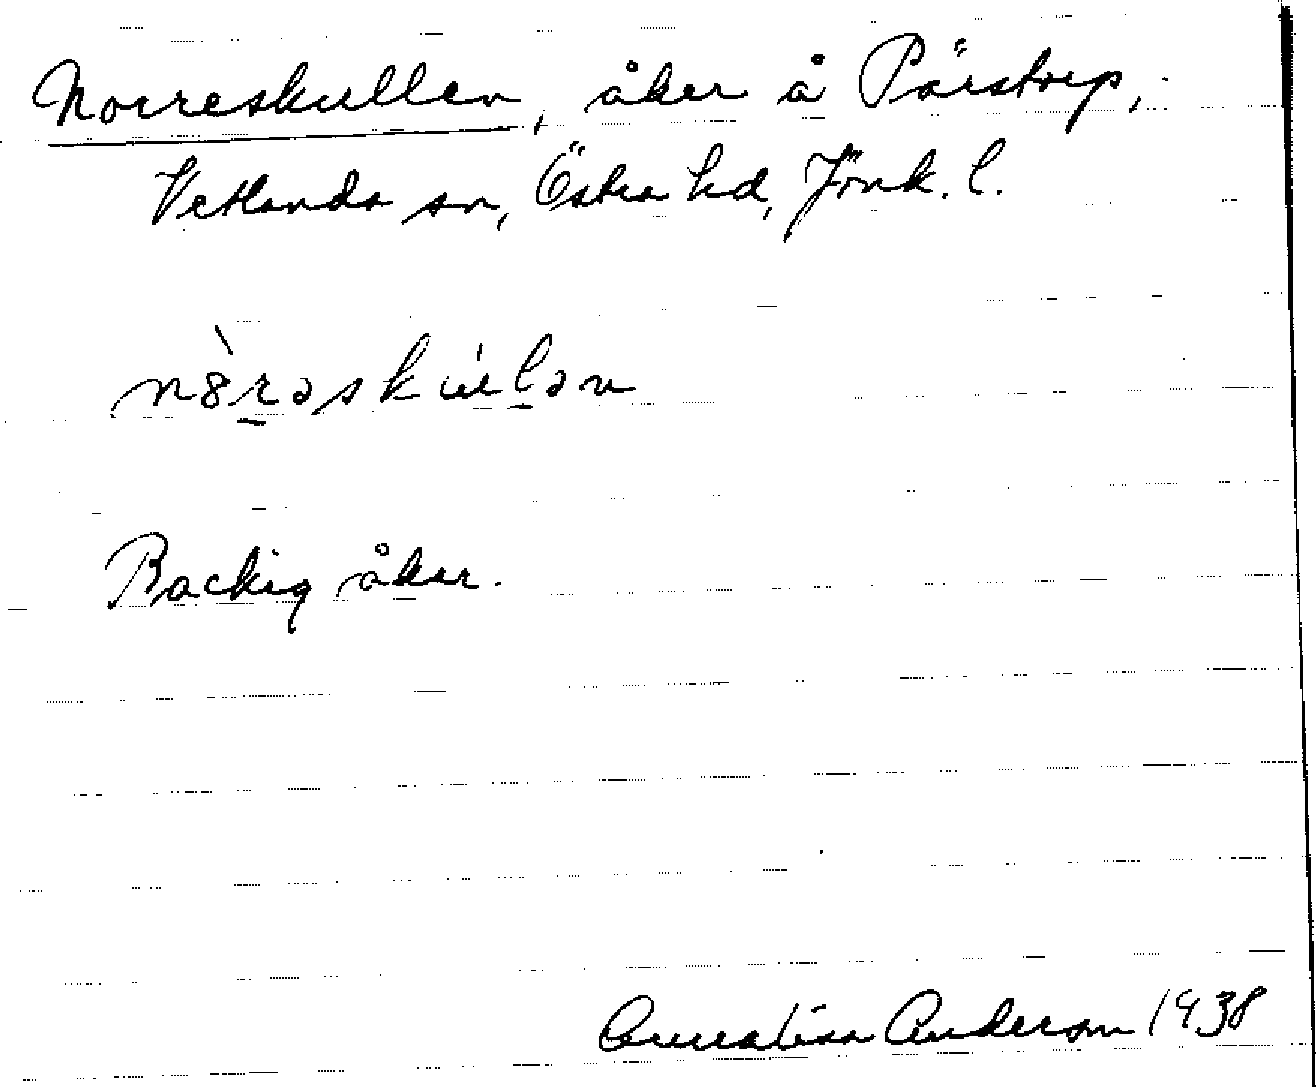 Norreskullen, åker å Pärstorp,
Vetlanda sn, Östra hd, Jönk. l.
n8̀rəskúlən
Backig åker.
Annalisa Anderson 1938